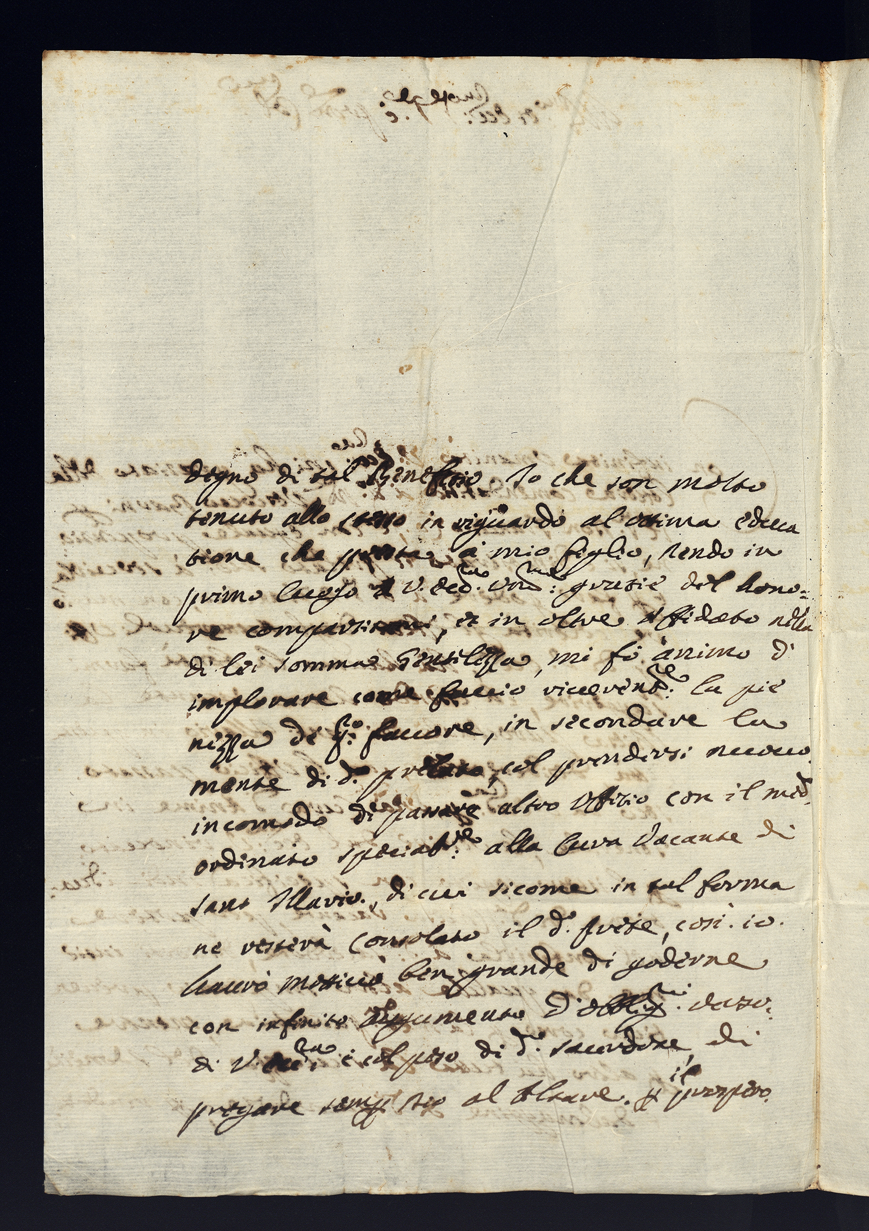 degno di tal Beneficio. Io che son molto
tenuto allo stesso in riguardo al ottima educa
tione che presta à mio figlio, rendo in
primo luogo à V. Ecc.za grazie del hono=
re compartitomi, et in oltre affidato nella
di lei somma Gentilezza, mi fò animo d'
implorare come faccio la pie
nezza de favore, in secondare la
mente di d.o prelato, col prendersi nuovo
incomodo di passare altro Offizio con il med.o
ordinato alla Cura Vacante di
Sant Illario, di cui sicome in tal forma
ne resterà consolato il d.o prete, così io
haurò motivo ben grande di goderne
con infinito augumento d' verso
di V. Ecc.za e col peso di d.o sacerdote, di
pregare semp. Dio al Altare. p il prospero